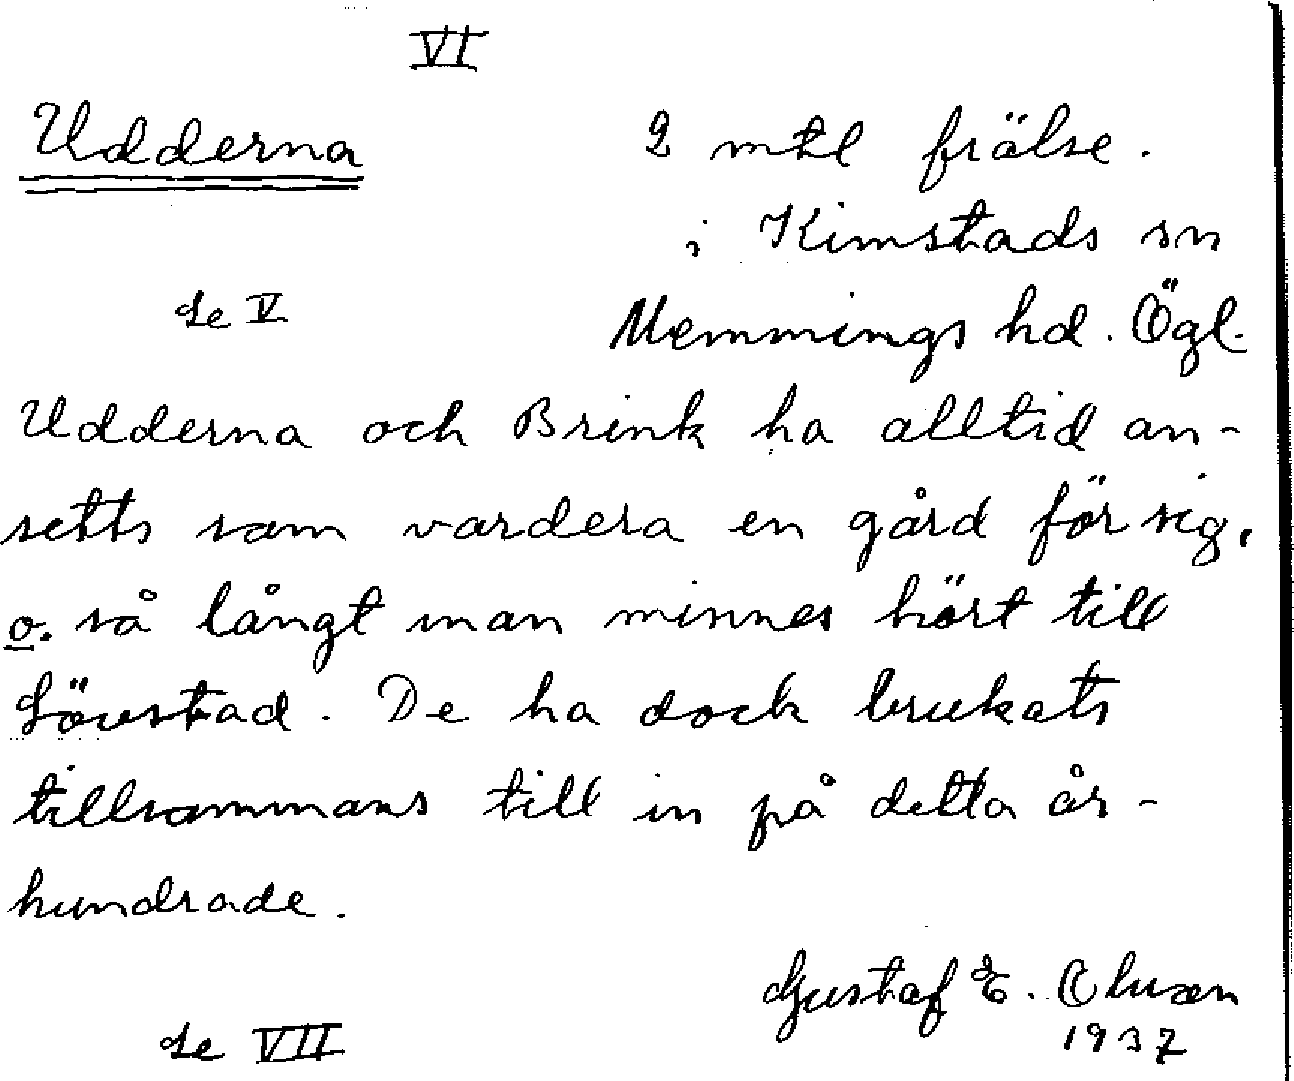 VI
Udderna 2 mtl frälse.
i Kimstads sn
Se V Memmings hd. Ögl.
Udderna och Brink ha alltid an-
setts som vardera en gård för sig,
o. så långt man minnes hört till
Lövestad. De ha dock brukats
tillsammans till in på detta år-
hundrade.
Gustaf E. Olsson
Se VII 1937